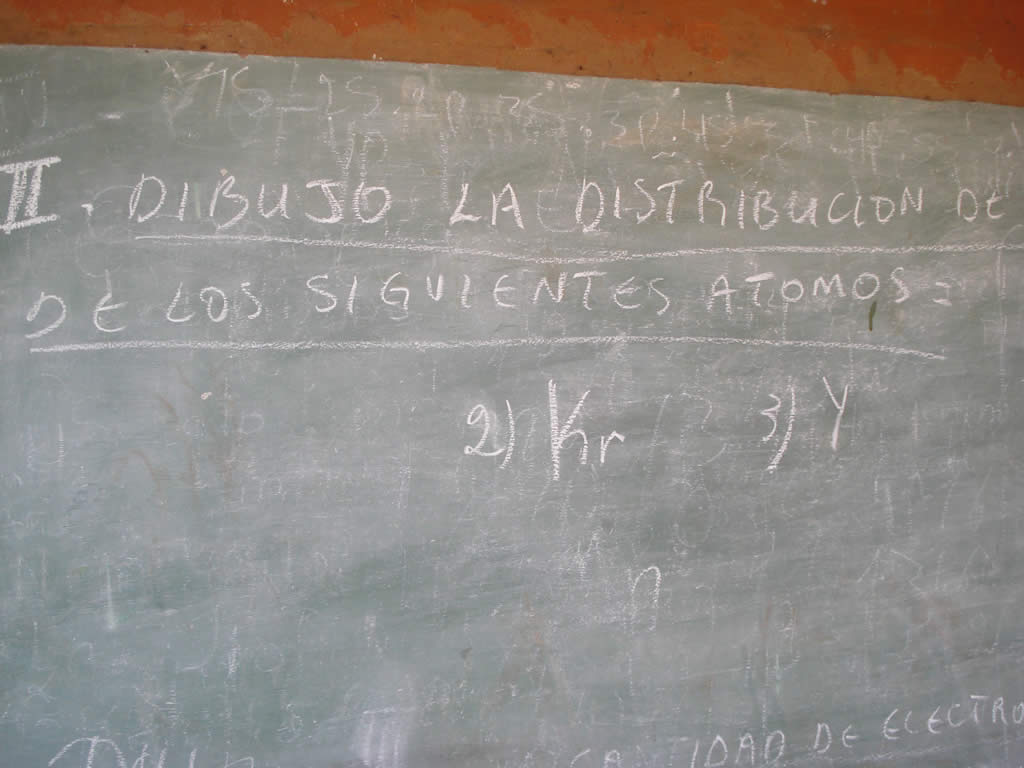 II. DIBUJO LA DISTRIBUCION DE
DE LOS SIGUIENTES ATOMOS:
2) Kr 3) Y
n
DE ELECTRO